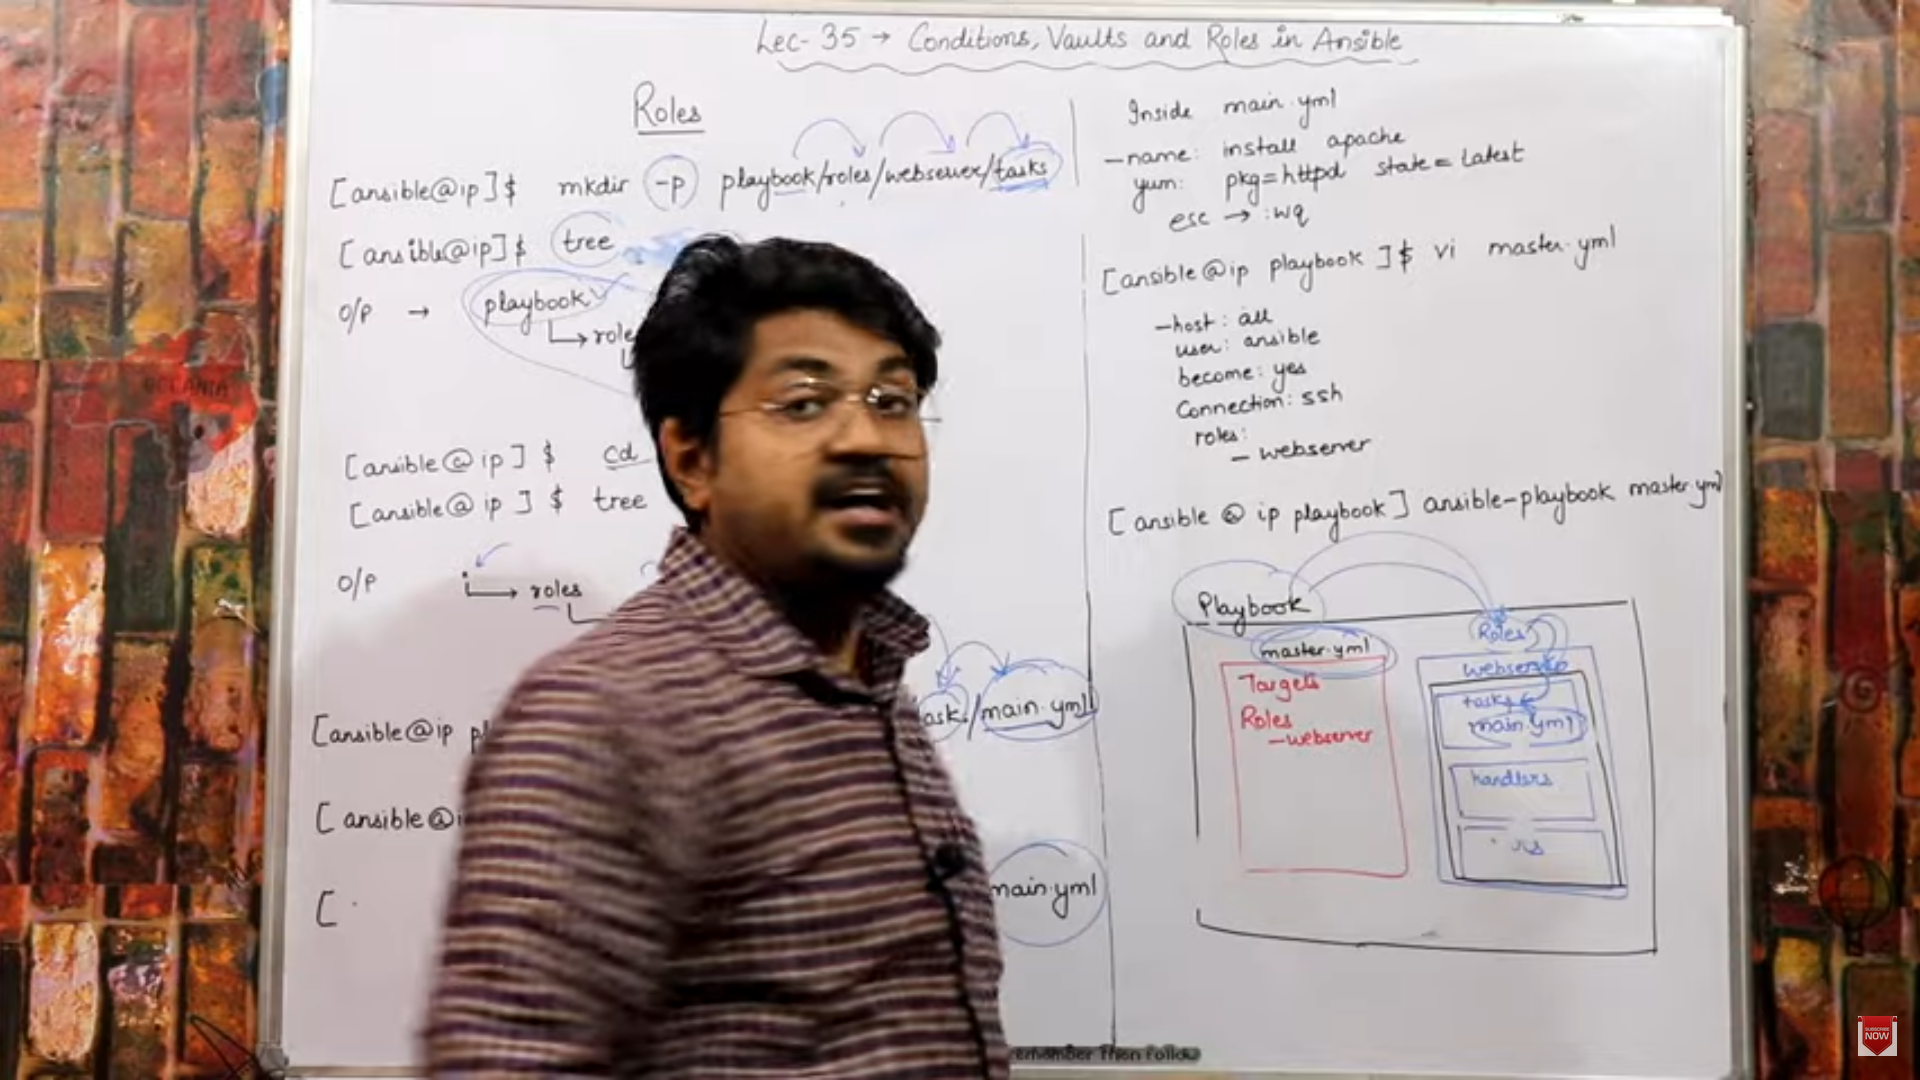 Lec-35 → Conditions, Vaults and Roles in Ansible
Roles
[ansible@ip]$ mkdir -p playbook/roles/webserver/tasks
[ansible@ip]$ tree
O/P → playbook
→ role
[ansible@ip]$ cd
[ansible@ip]$ tree
O/P
→ roles
[ansible@ip pl
ask/main.yml
[ansible@i
[
main.yml
Inside main.yml
-name: install apache
yum: pkg=httpd state=latest
esc → :wq
[ansible@ip playbook]$ vi master.yml
-host: all
user: ansible
become: yes
Connection: ssh
roles:
- webserver
[ansible@ip playbook] ansible-playbook master.yml
Playbook
master.yml
Targets
Roles
-webserver
Roles
webserver
tasks
main.yml
handlers
remember Then Follow
SUBSCRIBE
NOW
OCEANIA